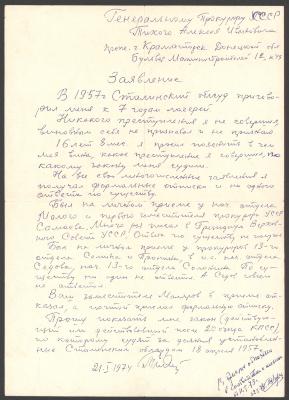 Генеральному Прокурору СССР
Тихого Алексея Ивановича
прож. г. Краматорск Донецкой обл.
Бульвар Машиностроителей
Заявление
В 1957г Сталинский облсуд пригово-
рил меня к 7 годам лагерей.
Никакого преступления я не совершил,
виновным себя не признавал и не признаю
16 лет я прошу пояснить в чем
моя вина, какое преступление я совершил, по
какому закону меня судили.
На все свои многочисленные заявления я
получал формальные отписки и ни одного
ответа по существу.
Был на личном приеме у нач. отдела
и первого заместителя прокурора УССР
Самаева. Много раз писал в Президиум Верхов-
ного Совета УССР. Ответ по существу не получил
Был на личном приеме у прокуроров 13-го
отдела и в и.о. нач. отдела
Седова, нач. 13-го отдела По су-
ществу ни один на ответа
не ответил.
Ваш заместитель Маляров в приеме от-
казал, а прислал формальную отписку.
Прошу показать мне закон (действую-
щий или действовавший после 20 съезда КПСС),
по которому судят за деяния установлен-
ные Сталинским облсудом 18 апреля 1957г.
21.I.1974